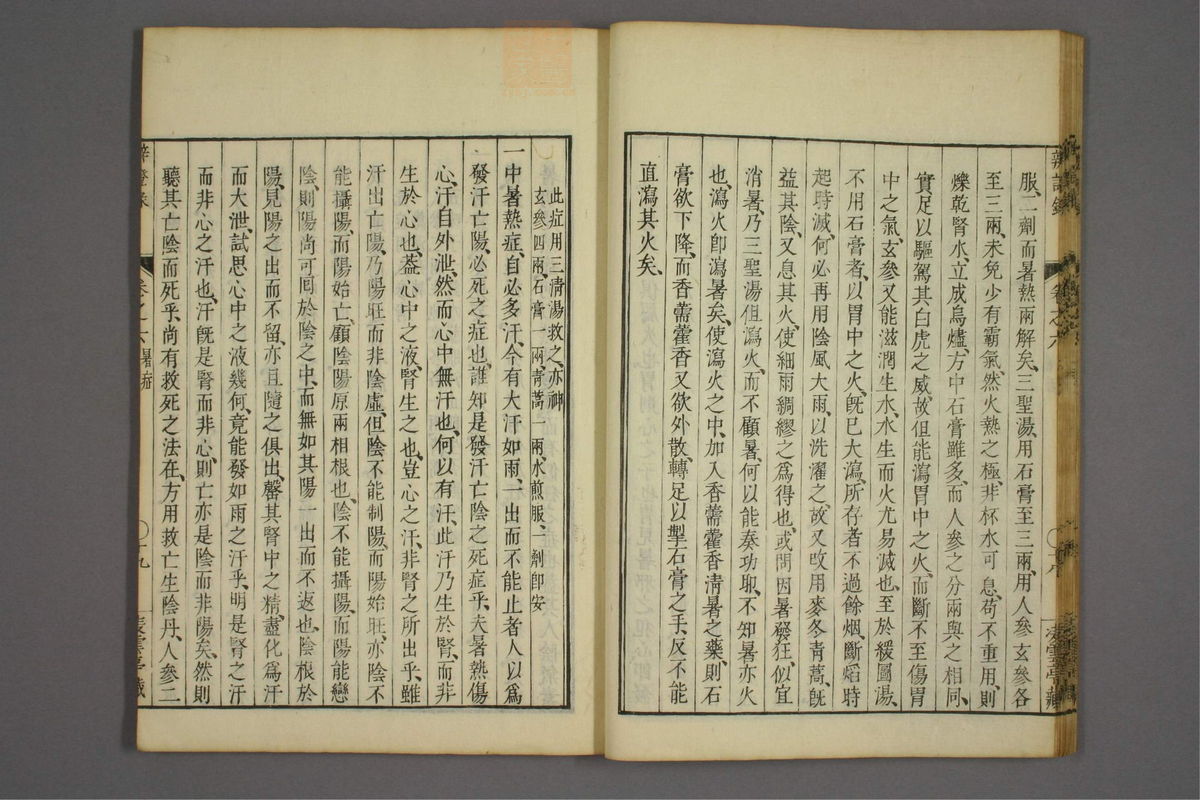 服二劑而暑熱兩解矣三聖湯用石膏至三兩用人參玄參各
至三兩未免少有霸氣然火熱之極非杯水可息苟不重用則
爍乾腎水立成烏燼方中石膏雖多而人參之分兩與之相同
實足以驅駕其白虎之威故但能瀉胃中之火而斷不至傷胃
中之氣玄參又能滋潤生水水生而火尤易滅也至於緩圖湯
不用石膏者以胃中之火旣已大瀉所存者不過餘烟斷熖時
起時滅何必再用陰風大雨以洗濯之故又攺用麥冬青蒿旣
益其陰又息其火使細雨綢繆之爲得也或問因暑發狂似宜
消暑乃三聖湯但瀉火而不顧暑何以能奏功耶不知暑亦火
也瀉火卽瀉暑矣使瀉火之中加入香薷藿香淸暑之藥則石
膏欲下降而香薷藿香又欲外散轉足以掣石膏之手反不能
直瀉其火矣
此症用三清湯救之亦神
玄參四兩石膏一兩青蒿一兩水煎服一劑卽安
一中暑熱症自必多汗今有大汗如雨一出而不能止者人以爲
發汗亡陽必死之症也誰知是發汗亡陰之死症乎夫暑熱傷
心汗自外泄然而心中無汗也何以有汗此汗乃生於腎而非
生於心也葢心中之液腎生之也豈心之汗非腎之所出乎雖
汗出亡陽乃陽旺而非陰虛但陰不能制陽而陽始旺亦陰不
能攝陽而陽始亡顧陰陽原兩相根也陰不能攝陽而陽能戀
陰則陽尚可囘於陰之中而無如其陽一出而不返也陰根於
陽見陽之出而不留亦且隨之俱出罄其腎中之精盡化爲汗
而大泄試思心中之液幾何竟能發如雨之汗乎明是腎之汗
而非心之汗也汗旣是腎而非心則亡亦是陰而非陽矣然則
聽其亡陰而死乎尚有救死之法在方用救亡生陰丹人參二
辛證录
卷之六暑症
十九
凌雲亭藏